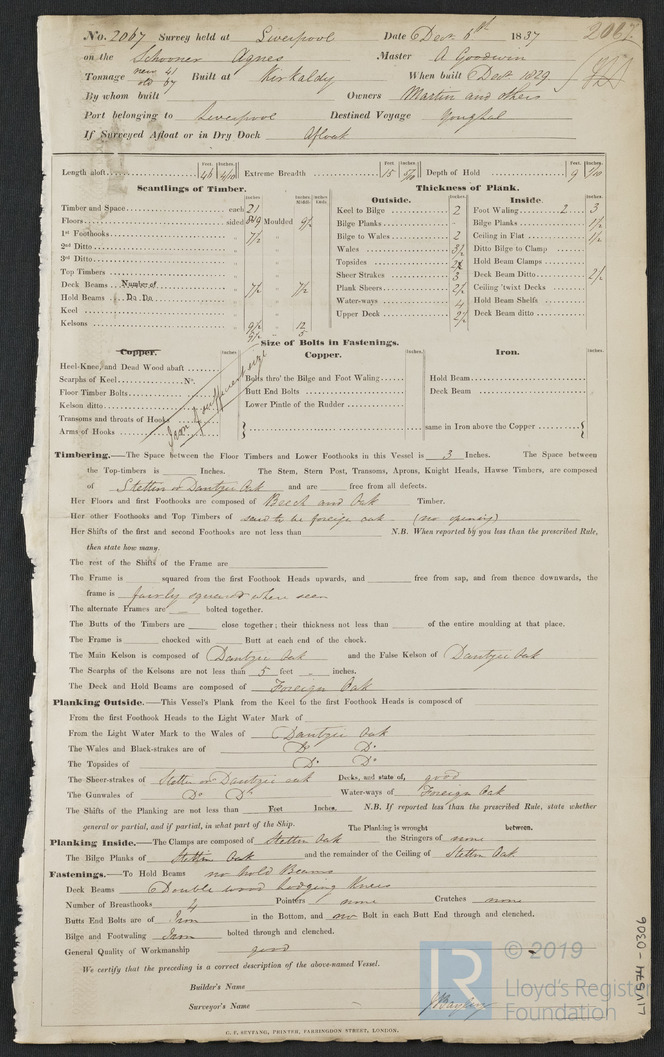 No. 2067 Survey held at Liverpool Date Decr. 6th 1837 2067
on the Schooner Agnes Master A Goodwin
Tonnage new 41 old 67 Built at Kirkaldy When built Decr. 1829
By whom built Owners Martin and others
Port belonging to Liverpool Destined Voyage Youghal
If Surveyed Afloat or in Dry Dock Afloat
Feet. Inches. Feet. Inches. Feet. Inches.
Length aloft 46 4/10 Extreme Breadth 15 Depth of Hold 9 1/10
Scantlings of Timber. Thickness of Plank.
Inches. Inches. Middle. Inches. Ends. Outside. Inches. Inside. Inches.
Timber and Space each 21 Keel to Bilge 2 Foot Waling 2 3
Floors sided 8&9 Moulded 9 1/2 Bilge Planks - Bilge Planks 1 1/2
1st Foothooks " 7 1/2 Bilge to Wales 2 Ceiling in Flat 1 1/2
2nd Ditto " Wales 3 1/2 Ditto Bilge to Clamp
3rd Ditto " Topsides Hold Beam Clamps
Top Timbers " Sheer Strakes 3 Deck Beam Ditto 2 1/2
Deck Beams Number of " 7 1/2 7 1/2 Plank Sheers 2 1/2 Ceiling 'twixt Decks
Hold Beams Do Do " Water-ways 4 Hold Beam Shelfs
Keel " Upper Deck 2 1/2 Deck Beam ditto
Kelsons 9 1/2 12
9 1/2 5
Size of Bolts in Fastenings.
Copper. Inches. Copper. Inches. Iron. Inches.
Heel-Knee, and Dead Wood abaft
Scarphs of Keel No. Bolts thro' the Bilge and Foot Waling Hold Beam
Floor Timber Bolts Butt End Bolts Deck Beam
Kelson ditto Lower Pintle of the Rudder
Transoms and throats of Hooks
Arms of Hooks same in Iron above the Copper
Iron of sufficient size
Timbering.—The Space between the Floor Timbers and Lower Foothooks in this Vessel is 3 Inches. The Space between
the Top-timbers is Inches. The Stem, Stern Post, Transoms, Aprons, Knight Heads, Hawse Timbers, are composed
of Stettin or Dantzic Oak and are free from all defects.
Her Floors and first Foothooks are composed of Beech and Oak Timber.
Her other Foothooks and Top Timbers of said to be foreign oak (no opening)
Her Shifts of the first and second Foothooks are not less than N.B. When reported by you less than the prescribed Rule,
then state how many.
The rest of the Shifts of the Frame are
The Frame is squared from the first Foothook Heads upwards, and free from sap, and from thence downwards, the
frame is fairly squared where seen
The alternate Frames are bolted together.
The Butts of the Timbers are close together; their thickness not less than of the entire moulding at that place.
The Frame is chocked with Butt at each end of the chock.
The Main Kelson is composed of Dantzic Oak and the False Kelson of Dantzic Oak
The Scarphs of the Kelsons are not less than 5 feet - inches.
The Deck and Hold Beams are composed of Foreign Oak
Planking Outside.—This Vessel's Plank from the Keel to the first Foothook Heads is composed of
From the first Foothook Heads to the Light Water Mark of
From the Light Water Mark to the Wales of Dantzic Oak
The Wales and Black-strakes are of Do Do
The Topsides of Do Do
The Sheer-strakes of Stettin or Dantzic oak Decks, and state of, good
The Gunwales of Do Do Water-ways of Foreign Oak
The Shifts of the Planking are not less than Feet Inches. N.B. If reported less than the prescribed Rule, state whether
general or partial, and if partial, in what part of the Ship. The Planking is wrought between.
Planking Inside.—The Clamps are composed of Stettin Oak the Stringers of none
The Bilge Planks of Stettin Oak and the remainder of the Ceiling of Stettin Oak
Fastenings.—To Hold Beams no hold Beams
Deck Beams Double wood lodging Knees
Number of Breasthooks 4 Pointers none Crutches none
Butts End Bolts are of Iron in the Bottom, and no Bolt in each Butt End through and clenched.
Bilge and Footwaling Iron bolted through and clenched.
General Quality of Workmanship good
We certify that the preceding is a correct description of the above-named Vessel.
Builder's Name
Surveyor's Name
C. F. SEYFANG, PRINTER, FARRINGDON STREET, LONDON.
LIV534-0306
© 2019
LR
Lloyd's Register
Foundation